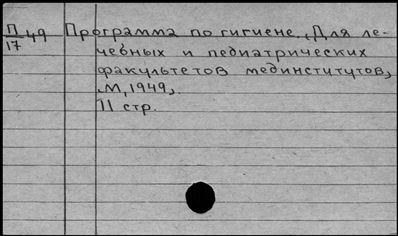 П/17 49 Программа по гигиене. (Для ле-
чебных и педиатрических
факультетов мединститутов)
М, 1949,
11 стр.